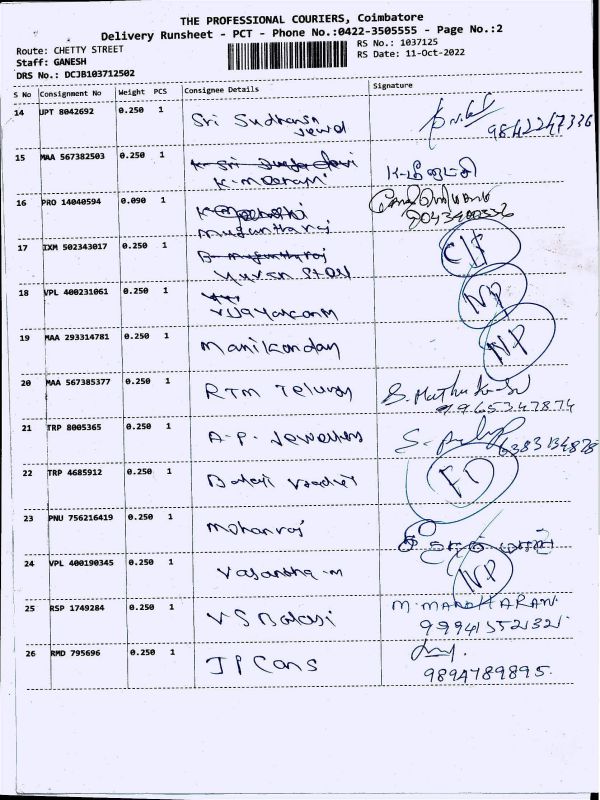 THE PROFESSIONAL COURIERS, Coimbatore
Delivery Runsheet - PCT - Phone No.:0422-3505555 - Page No.:2
Route: CHETTY STREET
RS No.: 1037125
Staff: GANESH
RS Date: 11-Oct-2022
DRS No.: DCJB103712502
S No Consignment No Weight PCS Consignee Details Signature
14 JPT 8042692 0.250 1 Sri Sudharsn
Jewel 9842247336
15 MAA 567382503 0.250 1
K-meenaxi K-மீனாட்சி
16 PRO 14040594 0.090 1
Mugunthan raj
17 IXM 502343017 0.250 1 CIF
Yuvan Stall
18 VPL 400231061 0.250 1 NP
Vijayakanm
19 MAA 293314781 0.250 1 Manikandan NP
20 MAA 567385377 0.250 1 RTM Teluvoy S. Muthu
9965347874
21 TRP 8005365 0.250 1 A-P. Jewellers 6383134878
22 TRP 4685912 0.250 1 Balaji FD
23 PNU 756216419 0.250 1 Mohanraj
24 VPL 400190345 0.250 1 Vasantha-M NP
25 RSP 1749284 0.250 1 VS Balaji M. MANOHARAN.
9994155213 21.
26 RMD 795696 0.250 1 JP Cans
9894789895.